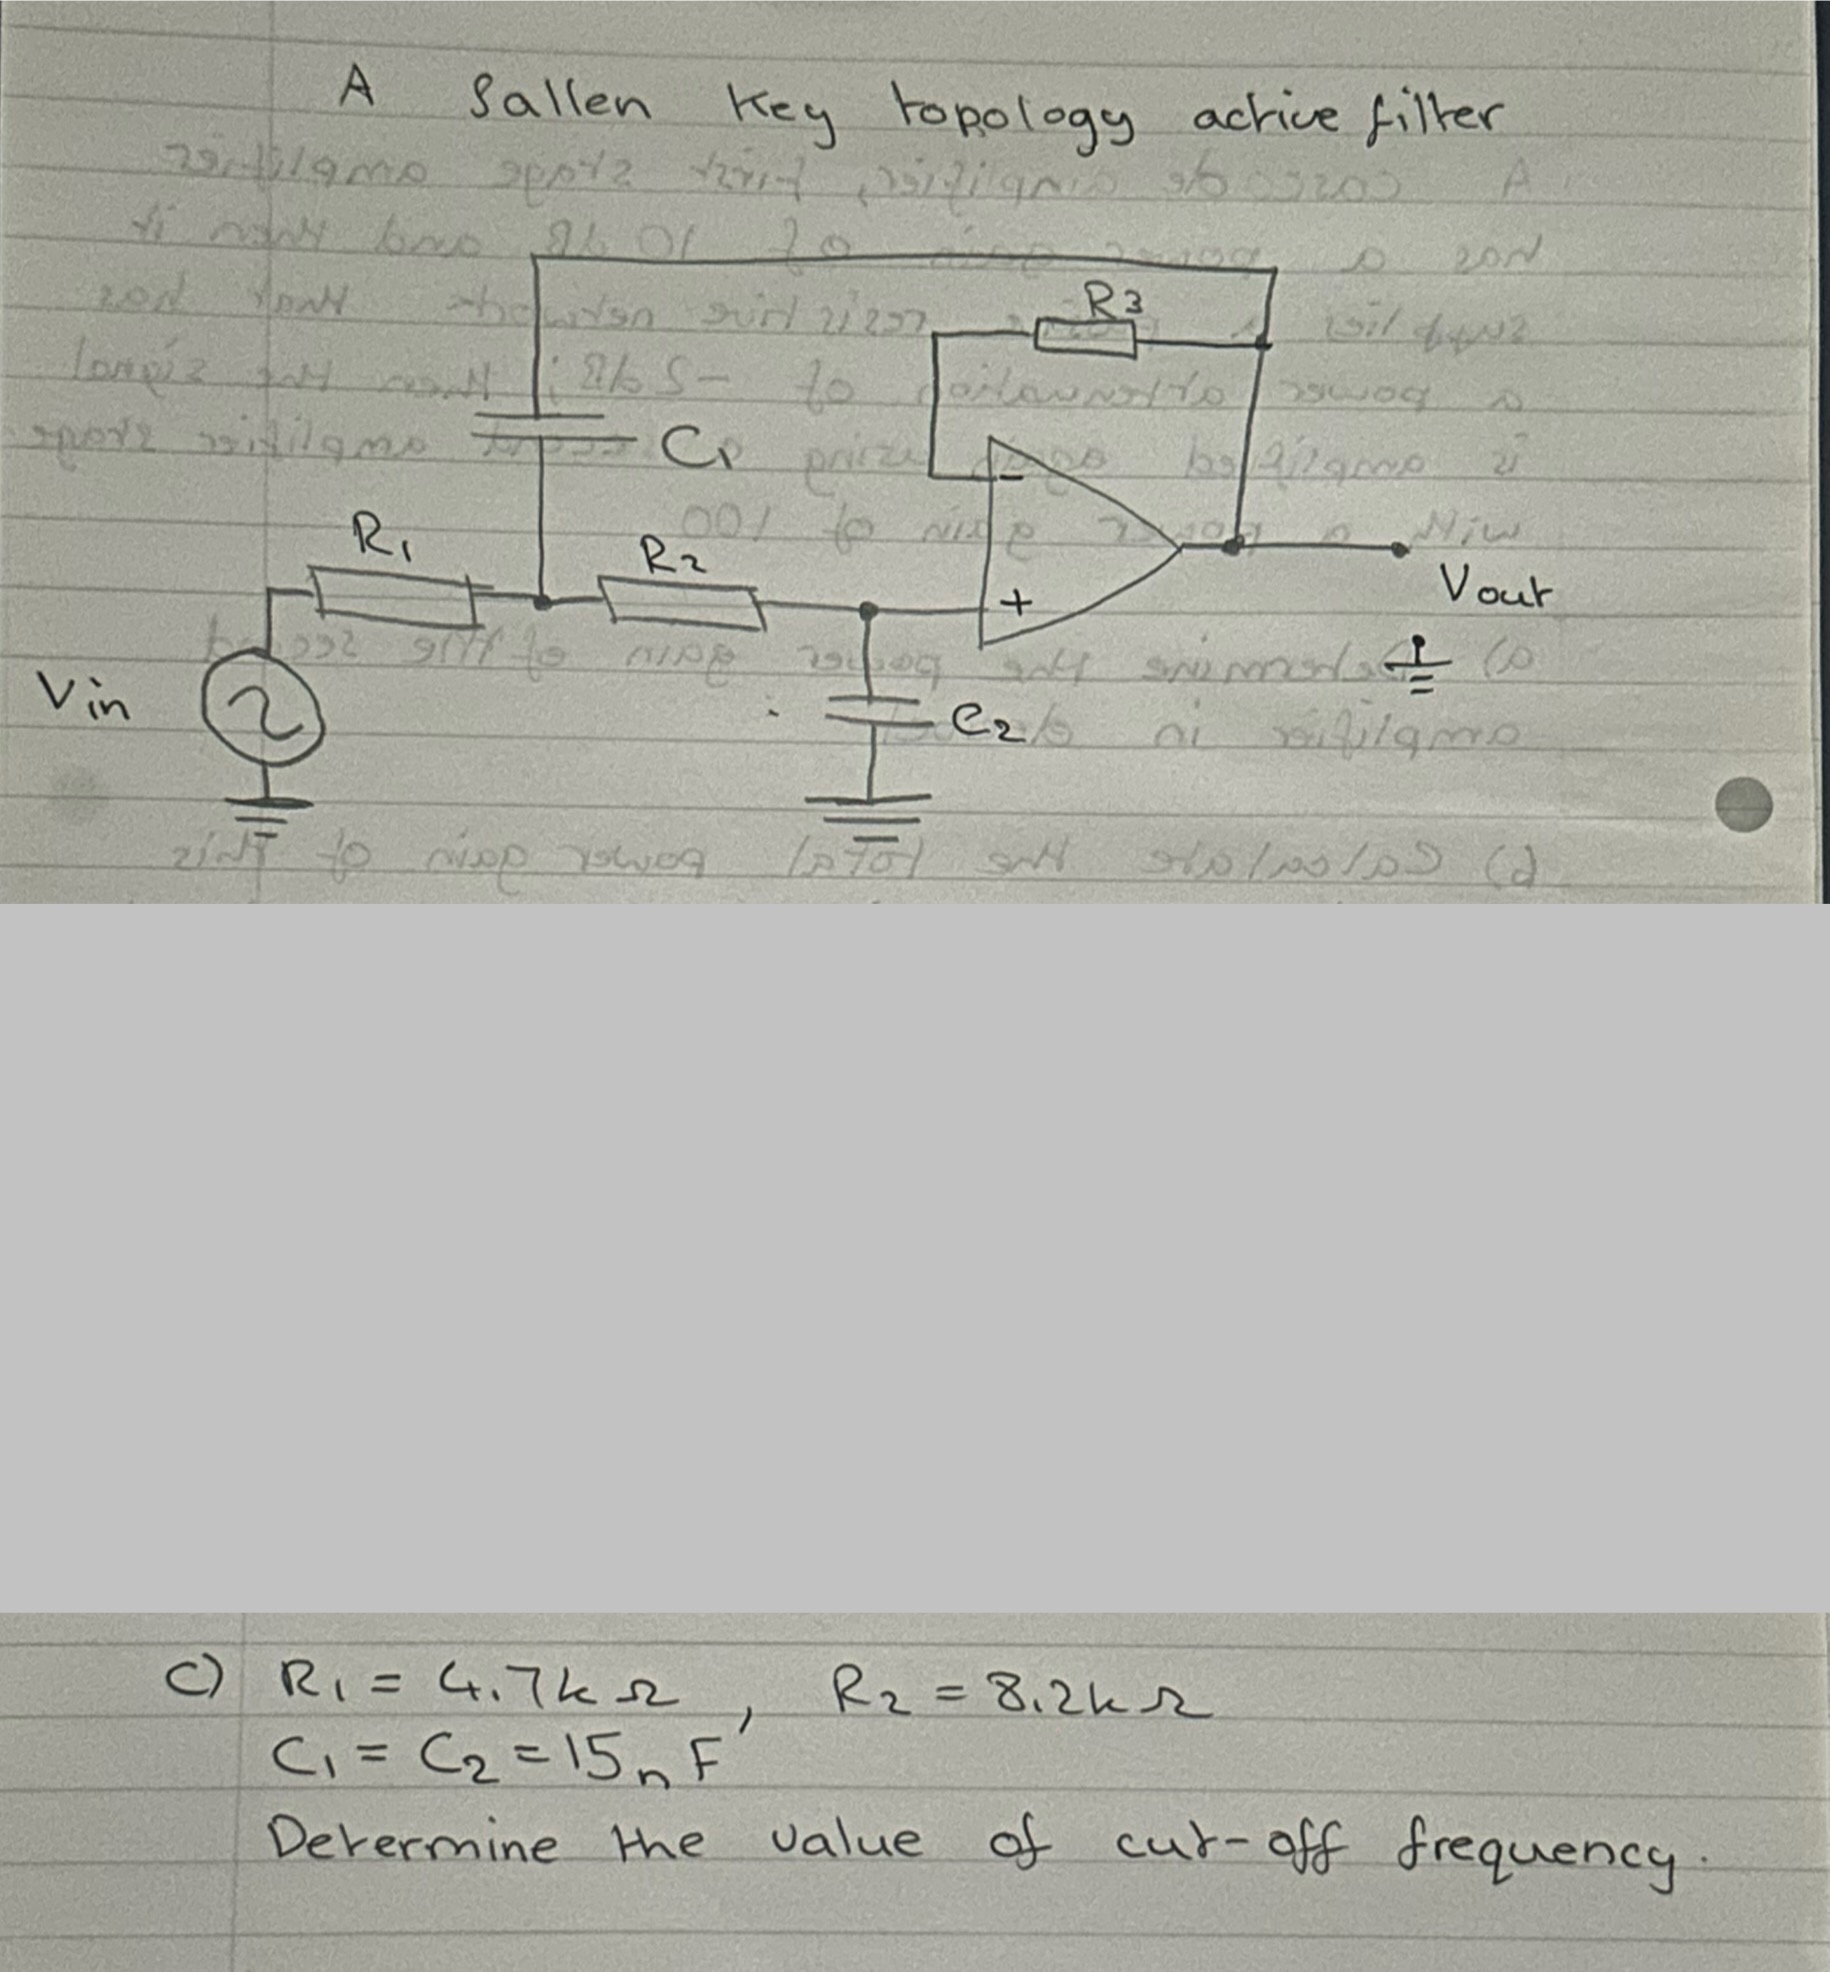 A Sallen Key topology active filter
R3
C1
R1
R2
-
+
Vout
Vin
C2
C) R1 = 4.7kΩ, R2 = 8.2kΩ
C1 = C2 = 15nF
Determine the value of cut-off frequency.